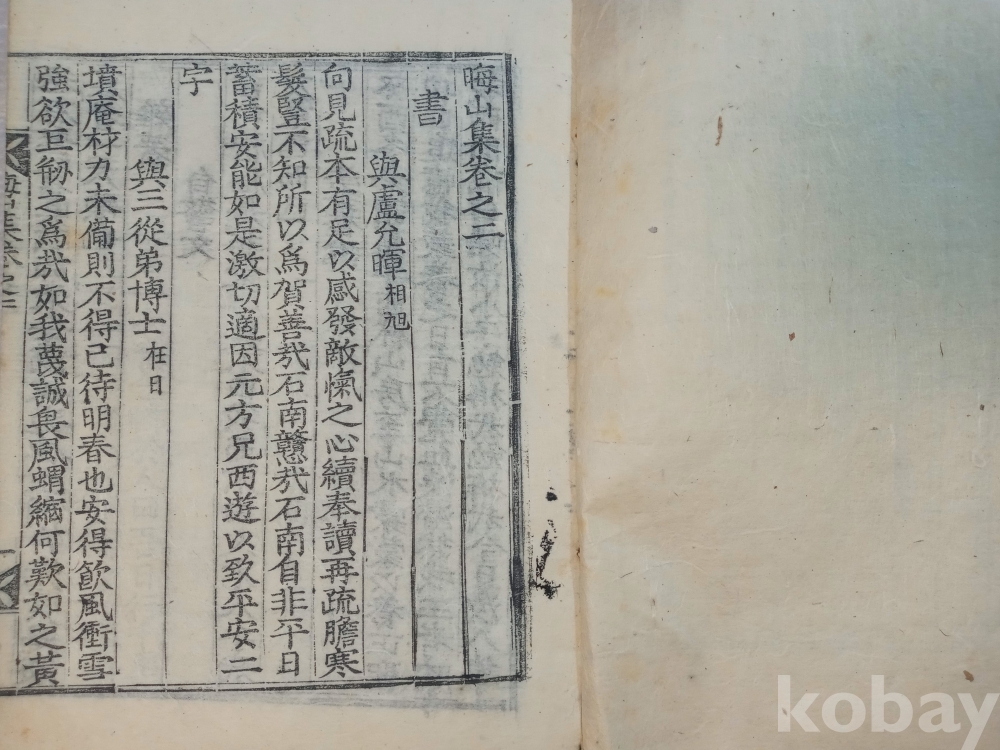 晦山集卷之二
書
與盧允暉 相旭
向見疏本有足以感發敵愾之心續奉讀再疏膽寒
髮豎不知所以爲賀善㢤石南戇㢤石南自非平日
蓄積安能如是激切適因元方兄西遊以致平安二
字
與三從弟博士 在日
墳庵材力未備則不得已待明春也安得飮風衝雪
強欲刱之爲㢤如我蔑誠畏風蝟縮何歎如之黃
晦山集卷之二
一
kobay